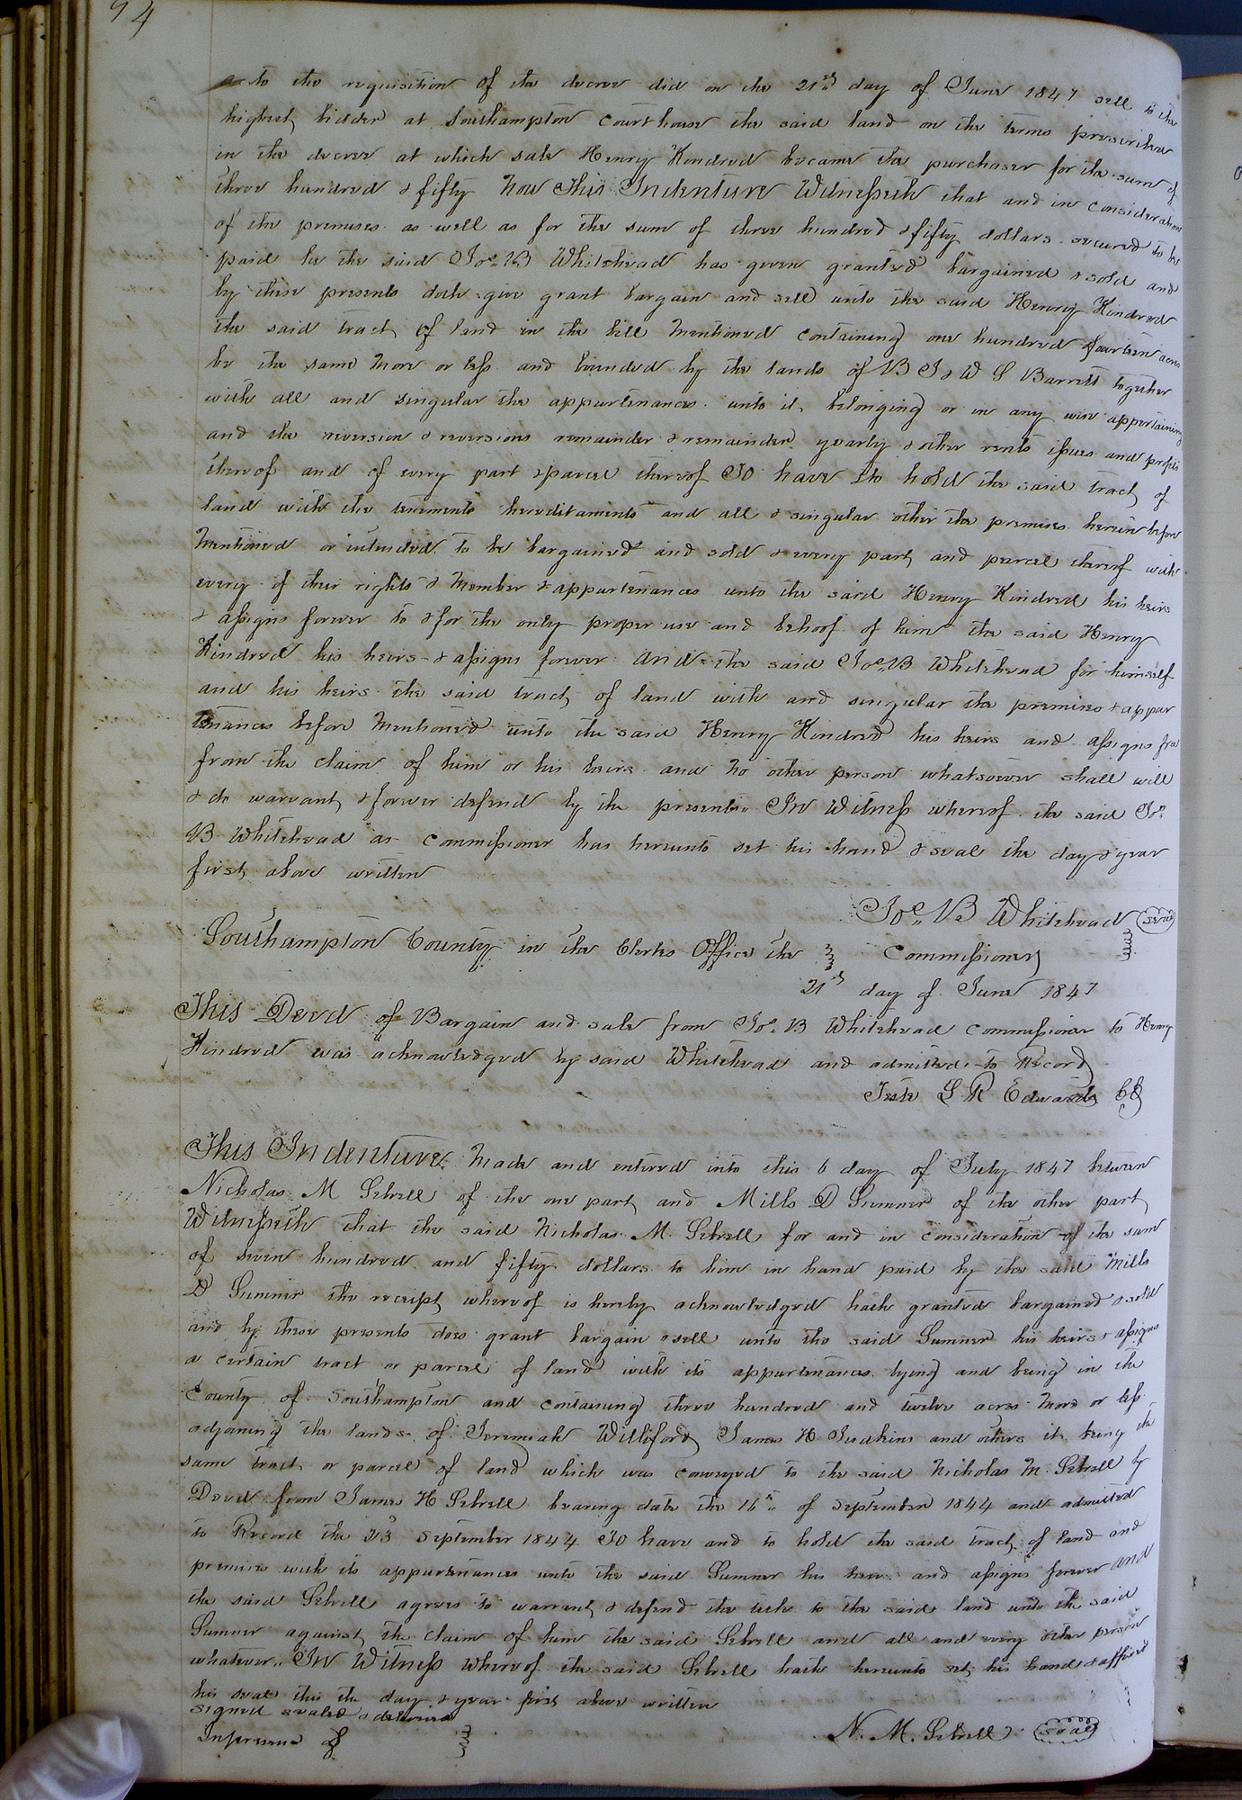 94
to the requisition of the decree did on the 21st day of June 1847 sell to the
highest bidder at Southampton Courthouse the said land on the terms prescribed
in the decree at which sale Henry Kindred became the purchaser for the sum of
three hundred & fifty Now This Indenture Witnesseth that and in consideration
of the premises as well as for the sum of three hundred & fifty dollars secured to be
paid he the said Jos. B Whitehead has given granted bargained & sold and
by these presents doth give grant bargain and sell unto the said Henry Kindred
the said tract of land in the bill mentioned containing one hundred fourteen acres
be the same more or less and bounded by the lands of B J & W S Barrett together
with all and singular the appurtenances unto it belonging or in any wise appertaining
and the reversion & reversions remainder & remainder yearly & other rents issues and profits
thereof and of every part & parcel thereof To have & to hold the said tract of
land with the tenements hereditaments and all & singular other the premises herein before
mentioned or intended to be bargained and sold & every part and parcel thereof with
every of their rights & member & appurtenances unto the said Henry Kindred his heirs
& assigns forever to & for the only proper use and behoof of him the said Henry
Kindred his heirs & assigns forever and the said Jos. B Whitehead for himself
and his heirs the said tract of land with and singular the premises & appur
tenances before mentioned unto the said Henry Kindred his heirs and assigns free
from the claim of him or his heirs and no other person whatsoever shall will
& do warrant & forever defend by the presents In Witness whereof the said Jos.
B Whitehead as Commissioner has hereunto set his hand & seal the day & year
first above written
Jos. B Whitehead seal
Southampton County in the Clerks Office the Commissioner
21st day of June 1847
This Deed of Bargain and sale from Jos. B Whitehead Commissioner to Henry
Kindred was acknowledged by said Whitehead and admitted to Record
Teste L R Edwards CC
This Indenture Made and entered into this 6 day of July 1847 between
Nicholas M Sebrell of the one part and Mills D Sumner of the other part
Witnesseth that the said Nicholas M. Sebrell for and in consideration of the sum
of seven hundred and fifty dollars to him in hand paid by the said Mills
D Sumner the receipt whereof is hereby acknowledged hath granted bargained & sold
and by these presents does grant bargain & sell unto the said Sumner his heirs & assigns
a certain tract or parcel of land with its appurtenances lying and being in the
County of Southampton and containing three hundred and twelve acres more or less
adjoining the lands of Jeremiah Williford James H Judkins and others it being the
same tract or parcel of land which was conveyed to the said Nicholas M. Sebrell by
Deed from James H Sebrell bearing date the 16th of September 1844 and admitted
to Record the 23 September 1844 To have and to hold the said tract of land and
premises with its appurtenances unto the said Sumner his heirs and assigns forever and
the said Sebrell agrees to warrant & defend the title to the said land unto the said
Sumner against the claim of him the said Sebrell and all and every other person
whatever. In Witness Whereof the said Sebrell hath hereunto set his hand & affixed
his seal this the day & year first above written
Signed sealed & delivered
In presence of
N. M. Sebrell seal